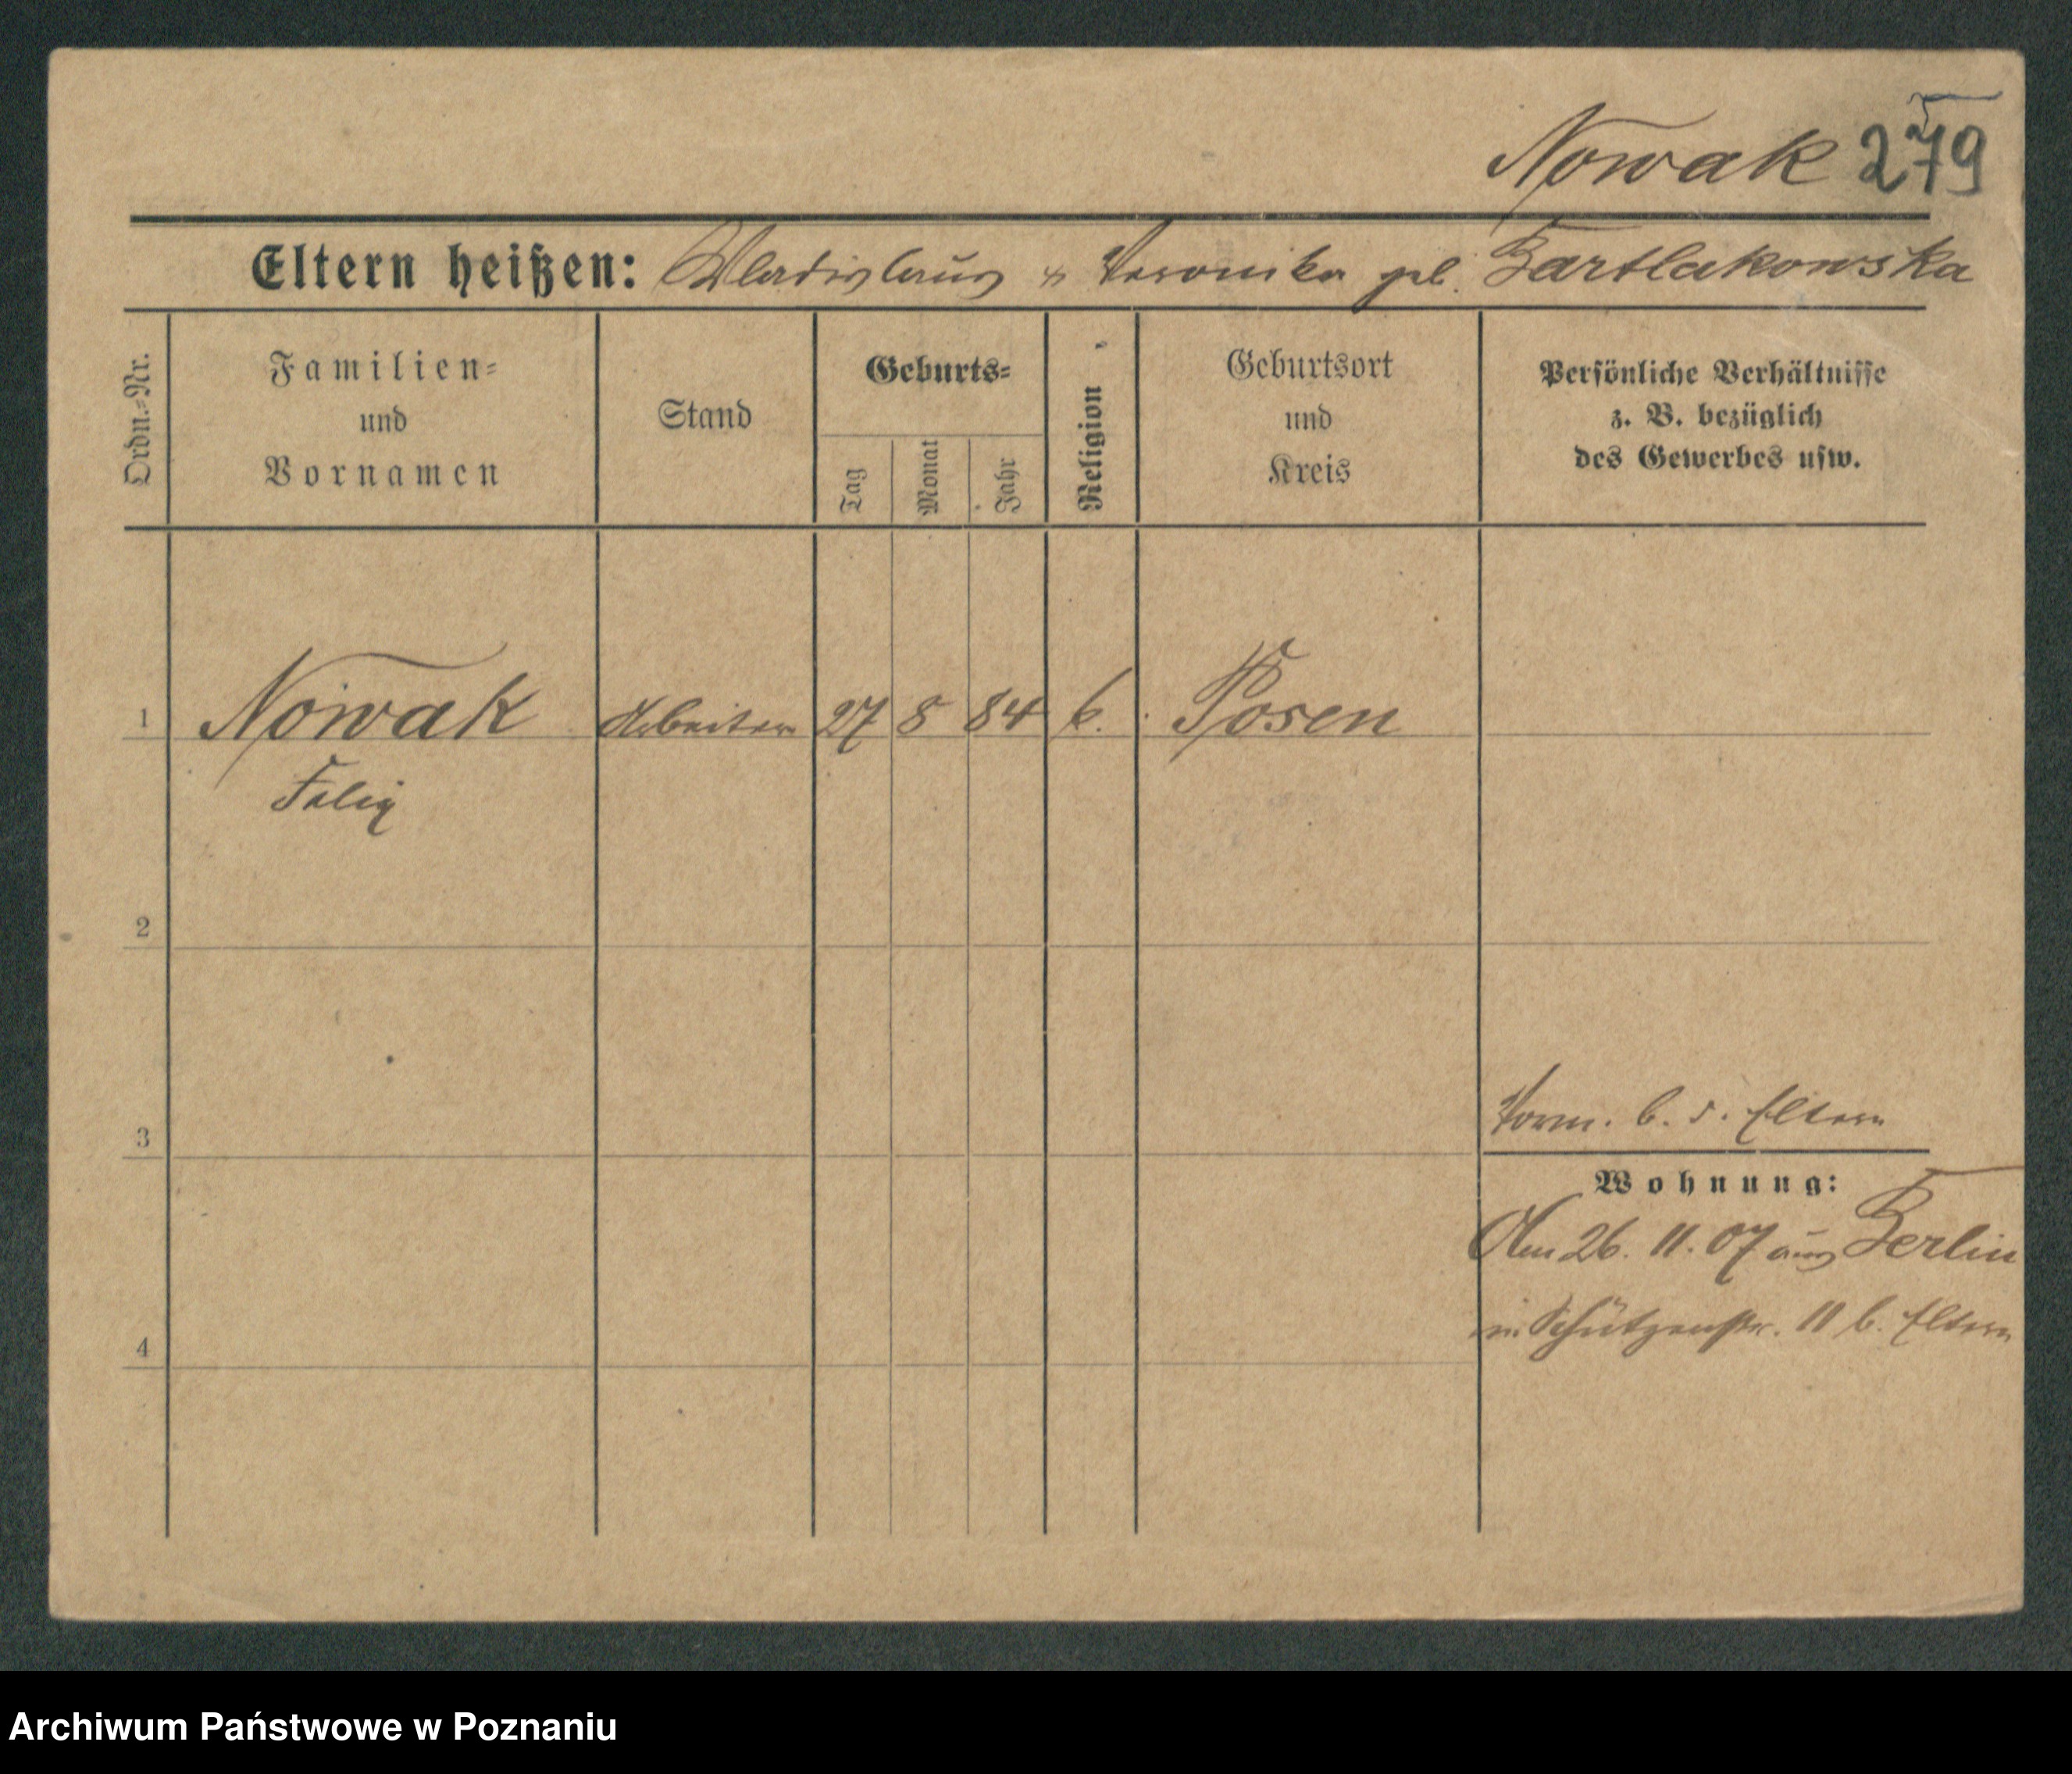 Nowak 279
Eltern heißen: Wladislaus & Veronika gb. Bartlakowska
Ordn.-Nr.
Familien-
und
Vornamen
Stand
Geburts-
Tag
Monat
Jahr
Religion
Geburtsort
und
Kreis
Persönliche Verhältnisse
z. B. bezüglich
des Gewerbes usw.
1 Nowak Arbeiter 27 8 84 k. Posen
Felix
2
3
Vorm. b. d. Eltern
Wohnung:
Am 26. 11. 07 aus Berlin
in Schützenstr. 11 b. Eltern
4
Archiwum Państwowe w Poznaniu